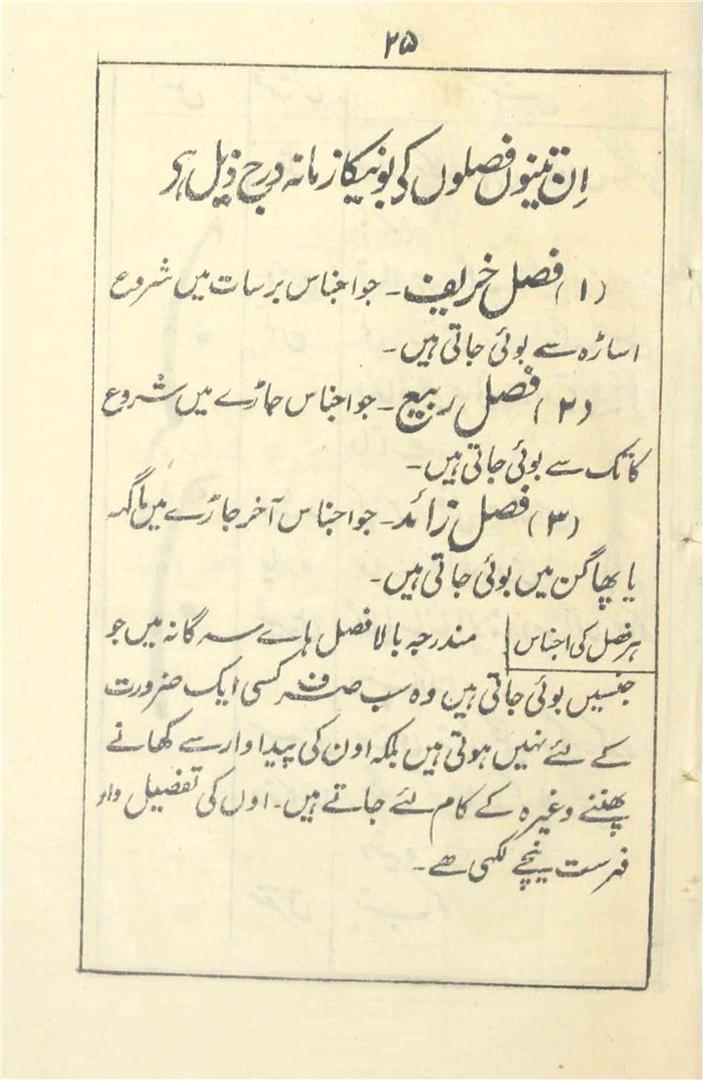 ۲۵
اِن تینوں فصلوں کی بونیکا زمانہ درج ذیل ہی
(۱) فصل خریف۔ جو اجناس برسات میں شروع
اساڑہ سے بوئی جاتی ہیں۔
(۲) فصل ربیع۔ جو اجناس جاڑے میں شروع
کاتک سے بوئی جاتی ہیں۔
(۳) فصل زائد۔ جو اجناس آخر جاڑے میں ماگہہ
یا پھاگن میں بوئی جاتی ہیں۔
ہر فصل کی اجناس مندرجہ بالا فصل ہاے سہ گانہ میں جو
جنسیں بوئی جاتی ہیں وہ سب صرف کسی ایک ضرورت
کے لئے نہیں ہوتی ہیں بلکہ اون کی پیداوار سے کھانے
پھننے وغیرہ کے کام لئے جاتے ہیں۔ اوں کی تفصیل وار
فہرست نیچے لکھی ھے۔